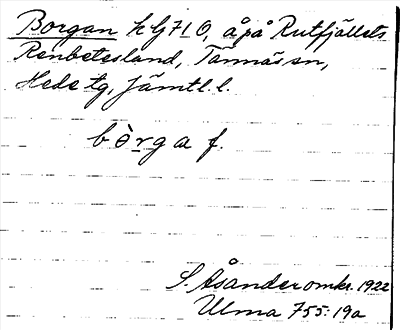 Borgan k GJ71 O, å på Rutfjällets
Renbetesland, Tännäs sn,
Hede tg, Jämtl. l.
bòrga f.
S. Åsander omkr. 1922
Ulma 755:19a